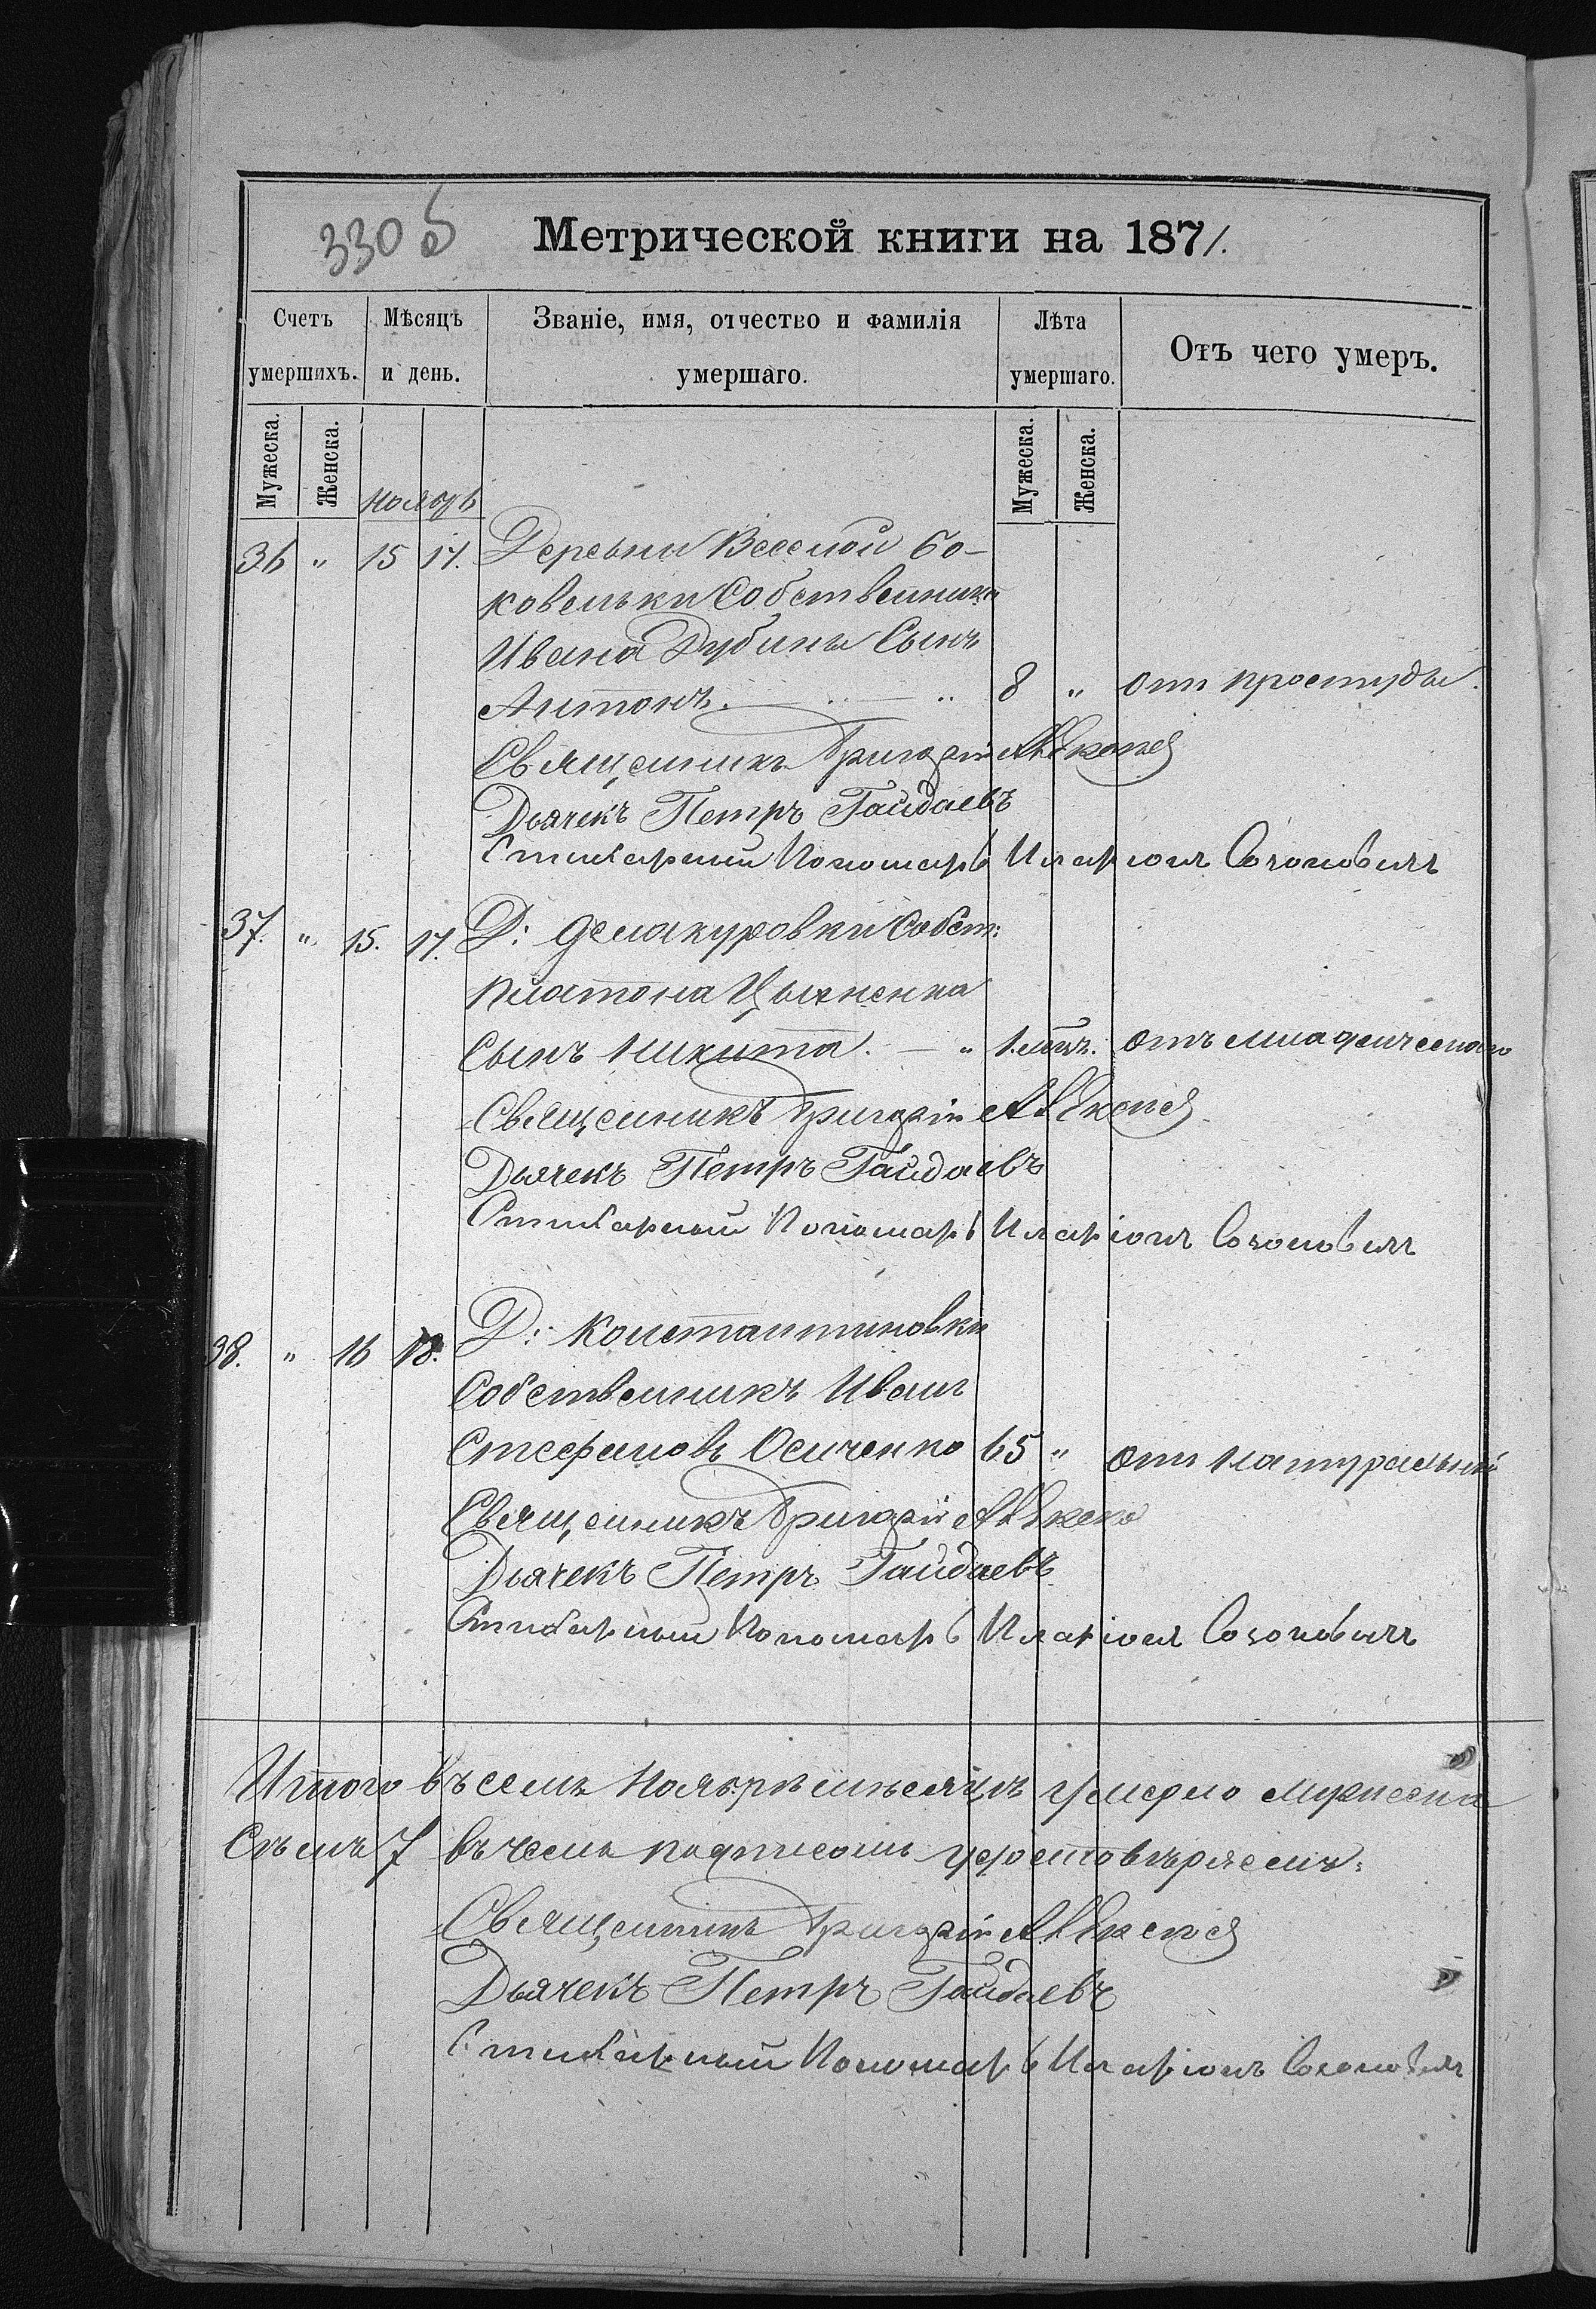 330 б
Метрической книги на 1871.
Счетъ умершихъ.
Мѣсяцъ и день.
Званіе, имя, отчество и фамилія умершаго.
Лѣта умершаго.
Отъ чего умеръ.
Мужеска. Женска. Мужеска. Женска.
Ноябрь
36 " 15 17. Деревни Веселой Бо-
ковельки Собственника
Ивана Дубины Сынъ
Антонъ. 8 " отъ простуды.
Священникъ Григорій
Дьячекъ Петръ Гайдаевъ
Стихарный Пономарь Иларіонъ
37. " 15. 17. Д: Демакуровки Собст:
Платона Цыхненка
Сынъ Никита. " 1.мѣц. отъ младенческого
Священникъ Григорій
Дьячекъ Петръ Гайдаевъ
Стихарный Пономарь Иларіонъ
38. " 16 18. Д: Константиновки
Собственникъ Иванъ
Стефановъ Осиченко 65 " отъ натуральной
Священникъ Григорій
Дьячекъ Петръ Гайдаевъ
Стихарный Пономарь Иларіонъ
Итого въ семъ Ноябрѣ мѣсяцѣ умерло мужеска
Семь 7 въ чемъ подписомъ удостовѣряемъ:
Священникъ Григорій
Дьячекъ Петръ Гайдаевъ
Стихарный Пономарь Иларіонъ